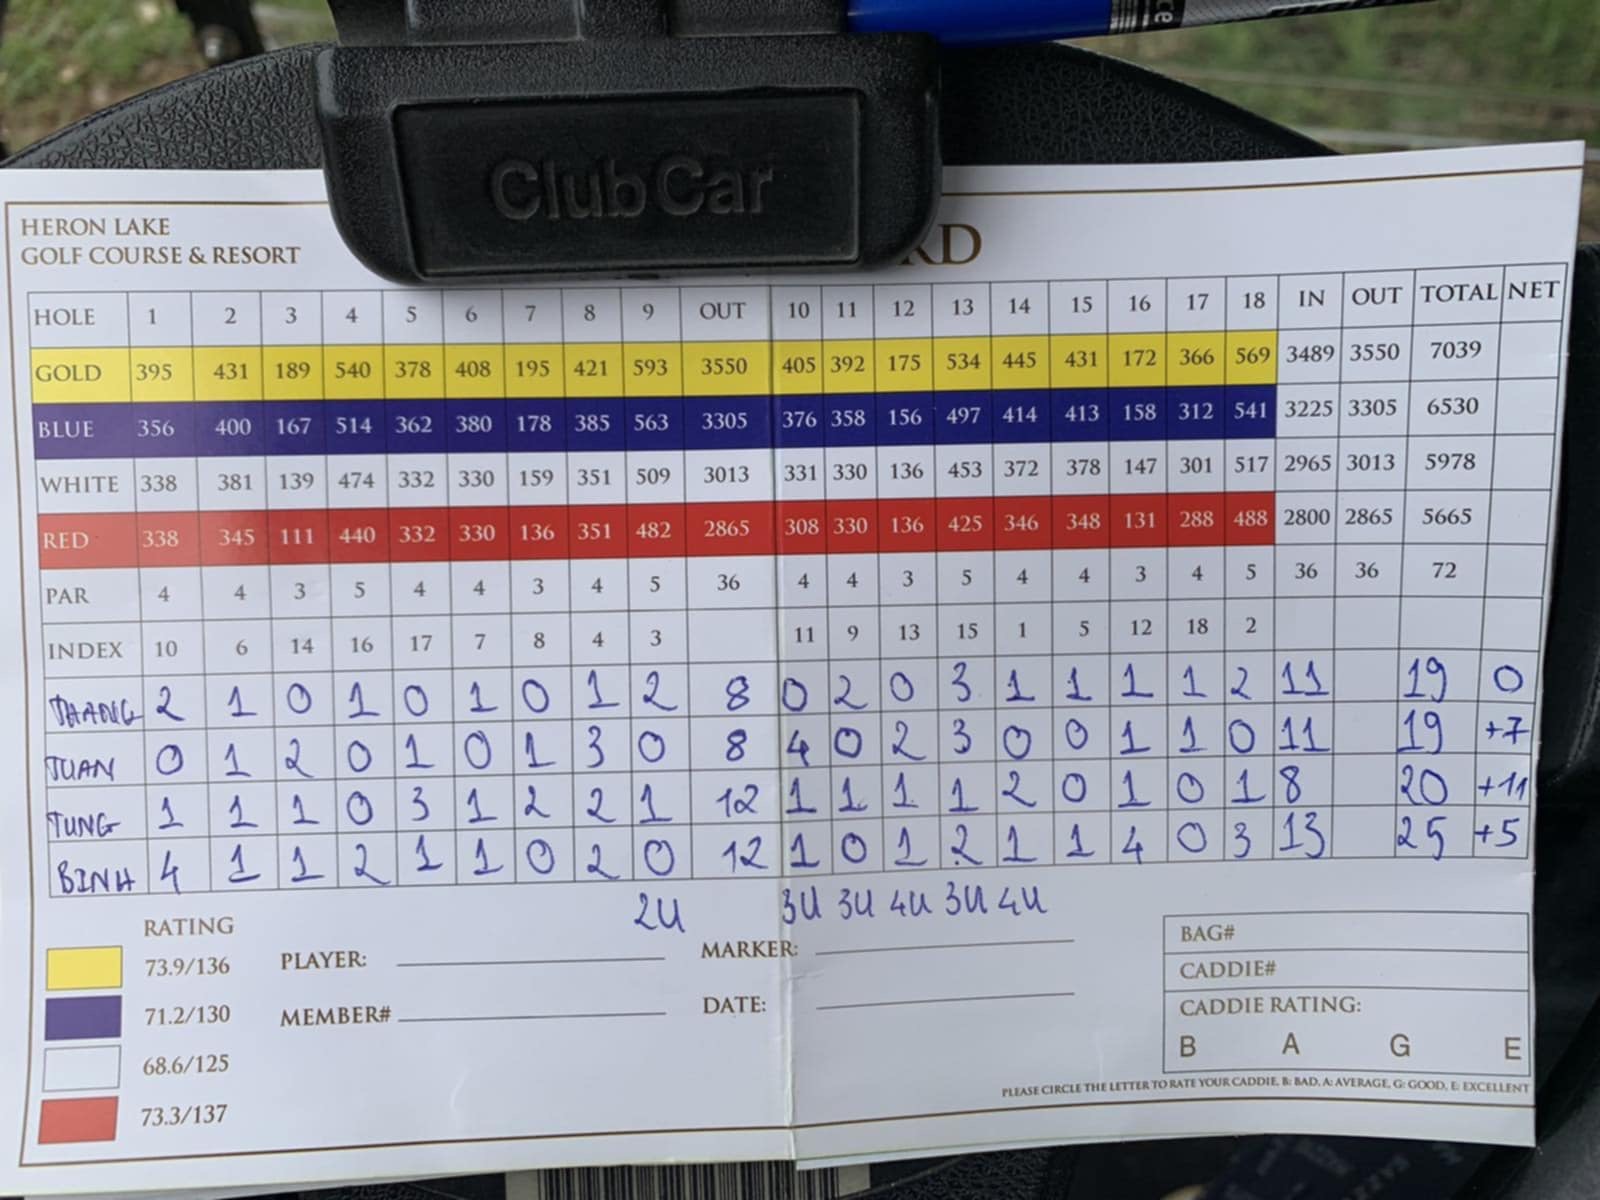 ce
ClubCar
HERON LAKE
GOLF COURSE & RESORT
RD
HOLE 1 2 3 4 5 6 7 8 9 OUT 10 11 12 13 14 15 16 17 18 IN OUT TOTAL NET
GOLD 395 431 189 540 378 408 195 421 593 3550 405 392 175 534 445 431 172 366 569 3489 3550 7039
BLUE 356 400 167 514 362 380 178 385 563 3305 376 358 156 497 414 413 158 312 541 3225 3305 6530
WHITE 338 381 139 474 332 330 159 351 509 3013 331 330 136 453 372 378 147 301 517 2965 3013 5978
RED 338 345 111 440 332 330 136 351 482 2865 308 330 136 425 346 348 131 288 488 2800 2865 5665
PAR 4 4 3 5 4 4 3 4 5 36 4 4 3 5 4 4 3 4 5 36 36 72
INDEX 10 6 14 16 17 7 8 4 3 11 9 13 15 1 5 12 18 2
THANG 2 1 0 1 0 1 0 1 2 8 0 2 0 3 1 1 1 1 2 11 19 0
TUAN 0 1 2 0 1 0 1 3 0 8 4 0 2 3 0 0 1 1 0 11 19 +7
TUNG 1 1 1 0 3 1 2 2 1 12 1 1 1 1 2 0 1 0 1 8 20 +11
BINH 4 1 1 2 1 1 0 2 0 12 1 0 1 2 1 1 4 0 3 13 25 +5
2U 3U 3U 4U 3U 4U
RATING
73.9/136
71.2/130
68.6/125
73.3/137
PLAYER:
MEMBER#
MARKER:
DATE:
BAG#
CADDIE#
CADDIE RATING:
B A G E
PLEASE CIRCLE THE LETTER TO RATE YOUR CADDIE, B: BAD, A: AVERAGE, G: GOOD, E: EXCELLENT